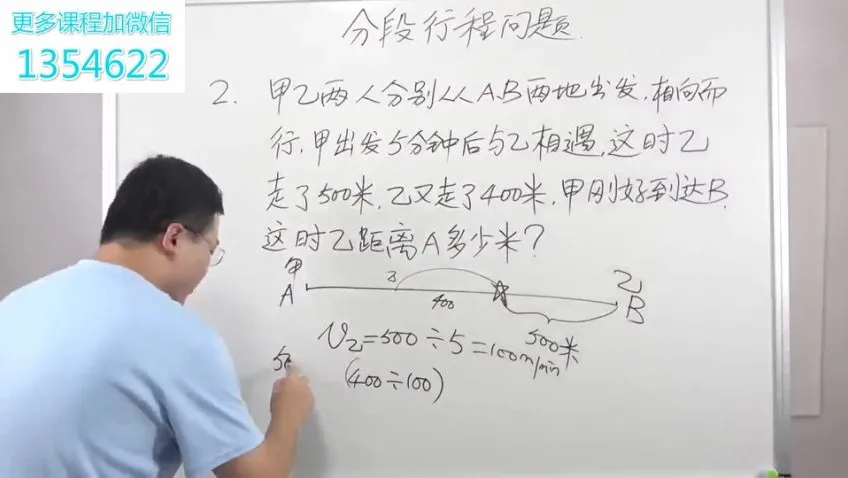 更多课程加微信
1354622
分段行程问题
2. 甲乙两人分别从A.B两地出发.相向而
行.甲出发5分钟后与乙相遇,这时乙
走了500米.乙又走了400米.甲刚好到达B.
这时乙距离A多少米?
甲 乙
A 400 B
500米
V乙=500÷5=100m/min
(400÷100)